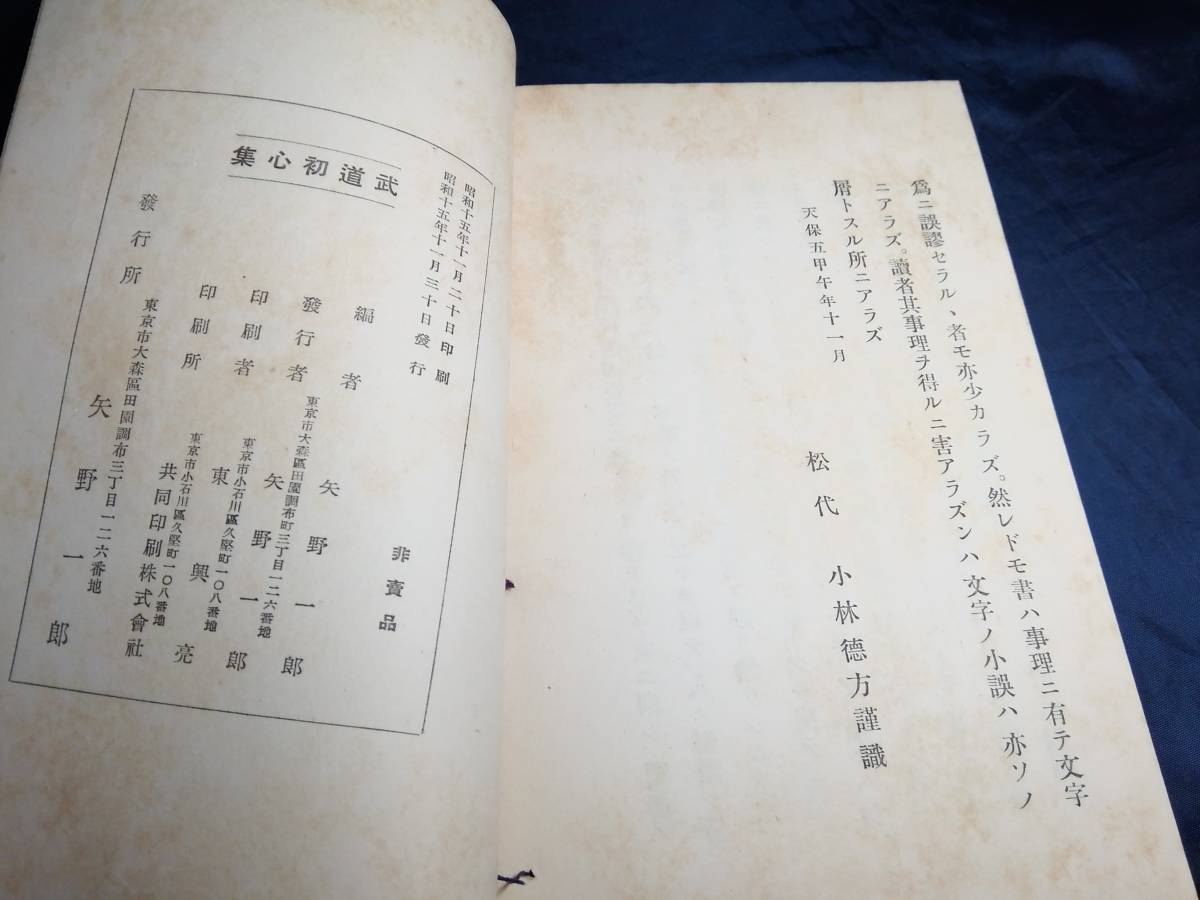 爲ニ誤謬セラルヽ者モ亦少カラズ。然レドモ書ハ事理ニ有テ文字
ニアラズ。讀者其事理ヲ得ルニ害アラズンハ文字ノ小誤ハ亦ソノ
屑トスル所ニアラズ
天保五甲午年十一月
松代 小林德方謹識
昭和十五年十一月二十日印刷
昭和十五年十一月三十日發行
武道初心集
非賣品
編者 矢野一郎
東京市大森區田園調布町三丁目一二六番地
發行者 矢野一郎
東京市小石川區久堅町一〇八番地
印刷者 東興亮
東京市小石川區久堅町一〇八番地
印刷所 共同印刷株式會社
東京市大森區田園調布三丁目一二六番地
發行所 矢野一郎